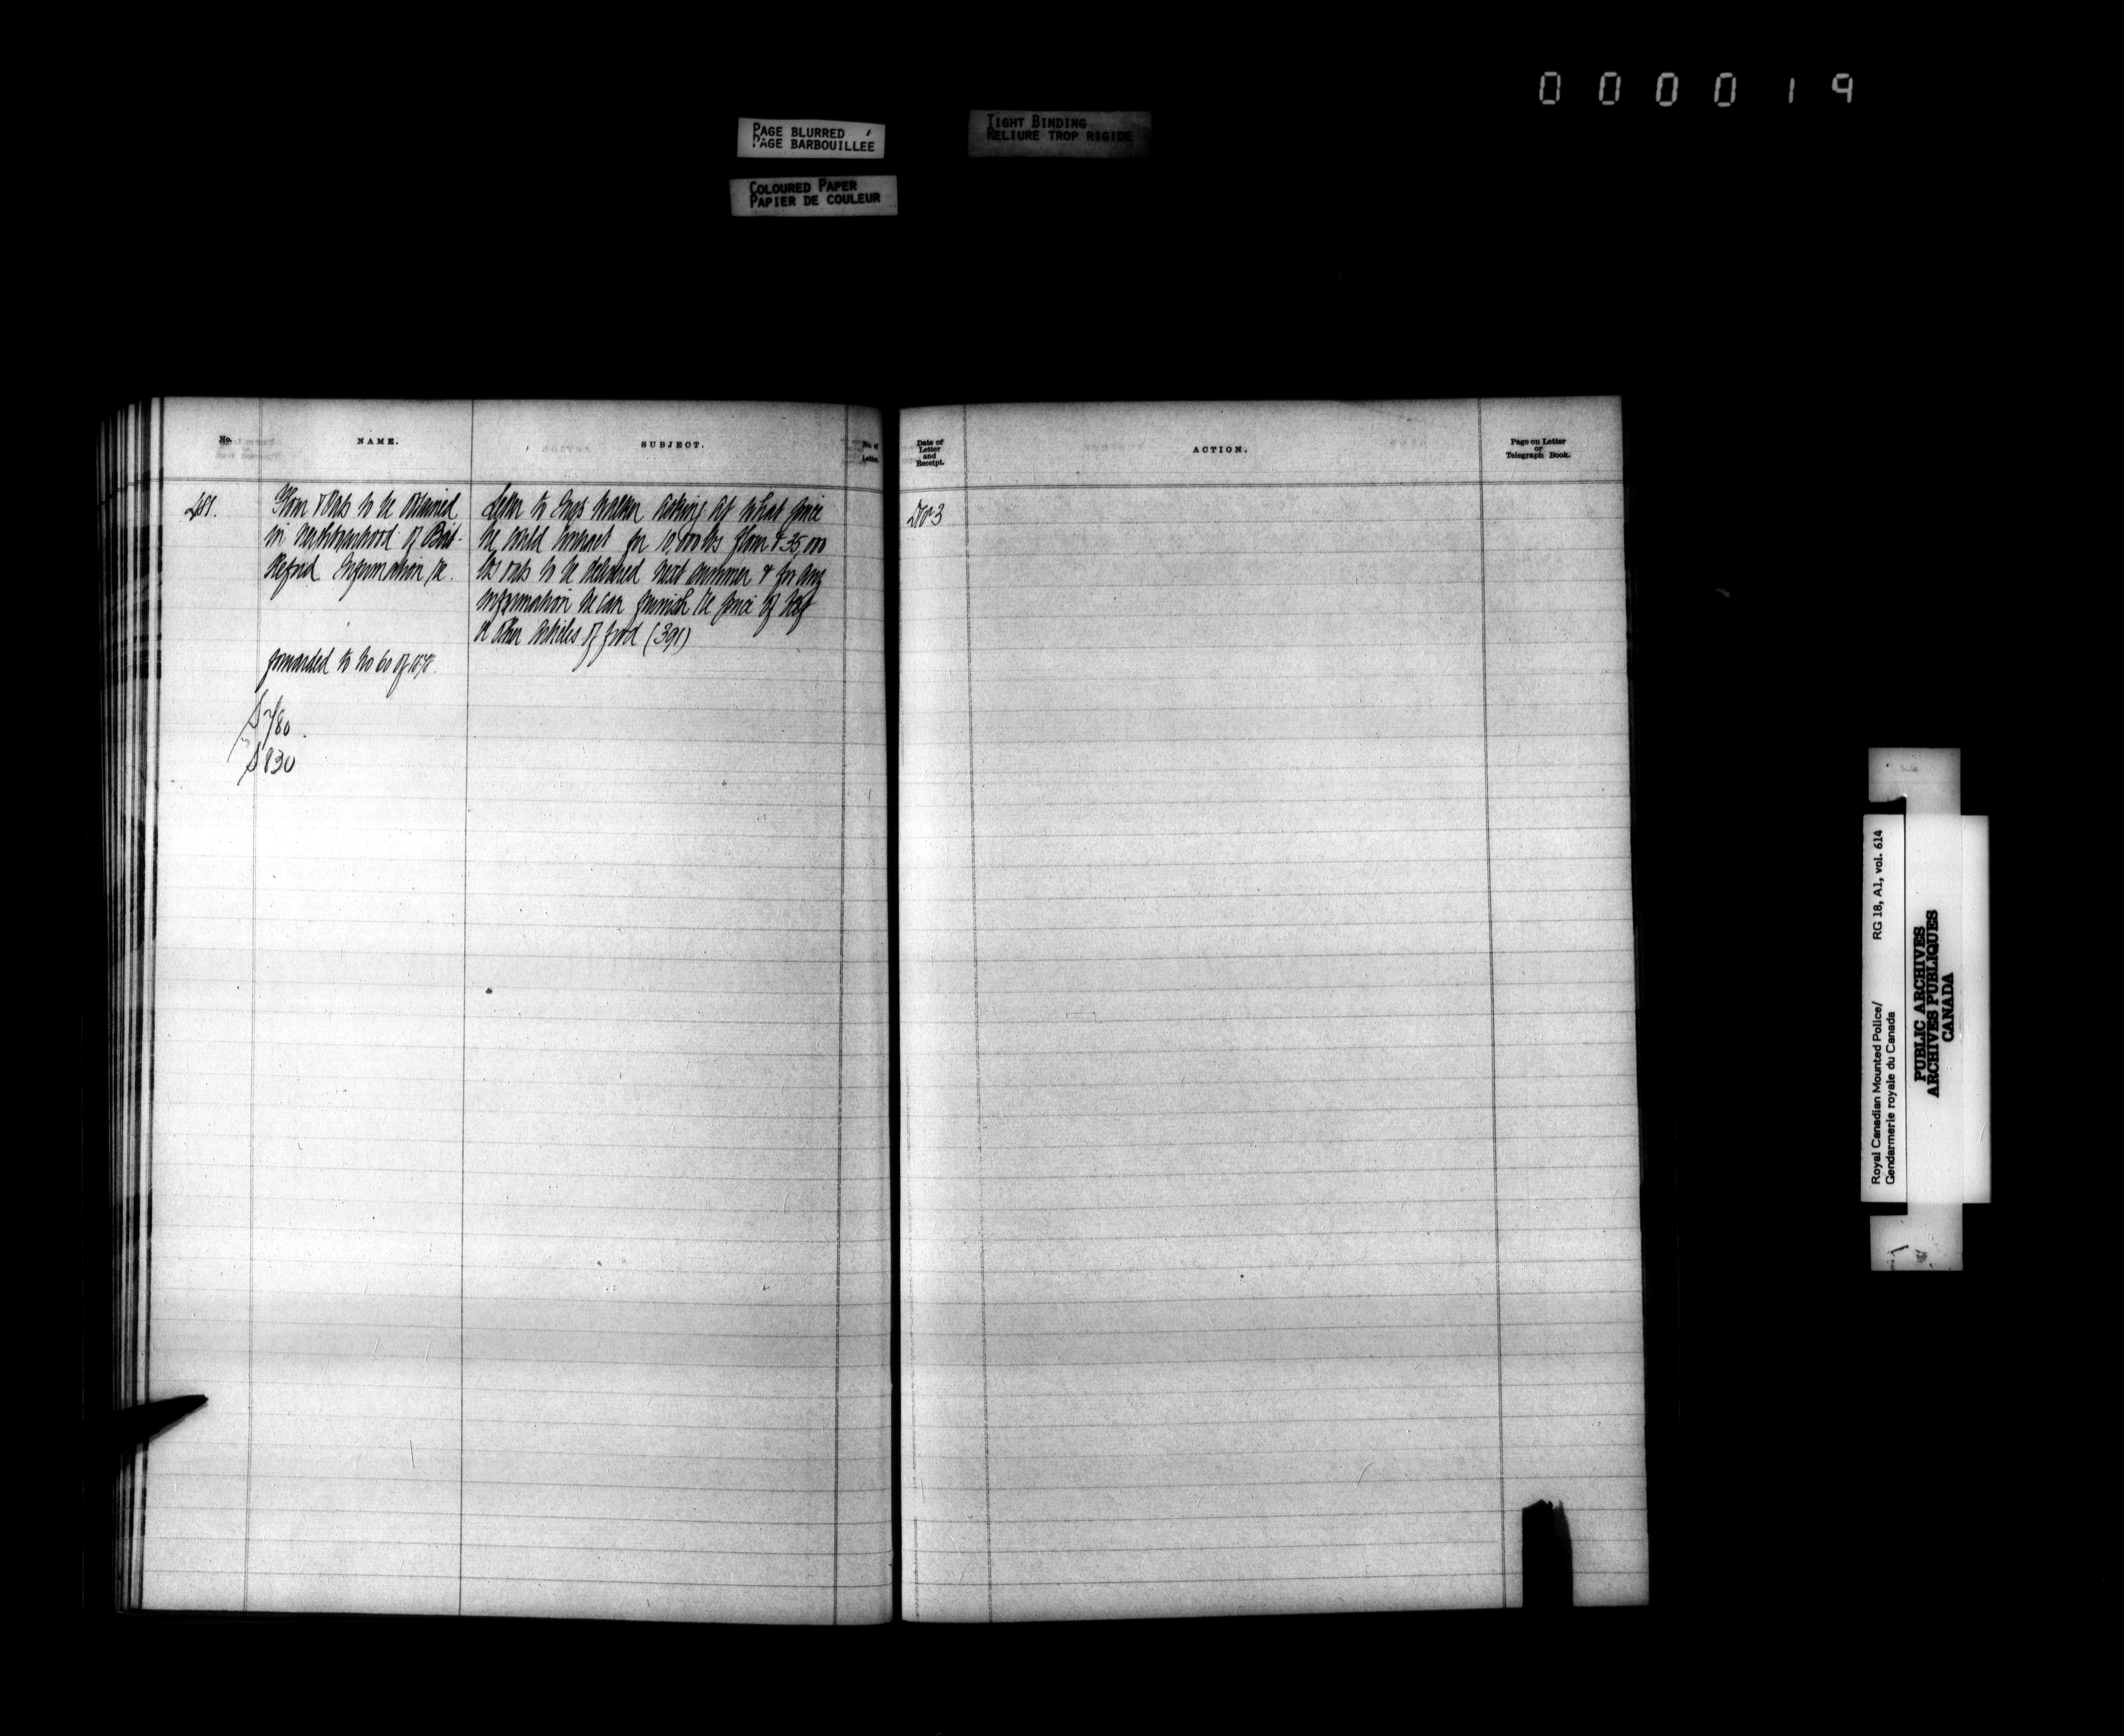 000019
PAGE BLURRED
PAGE BARBOUILLÉE
TIGHT BINDING
RELIURE TROP RIGIDE
COLOURED PAPER
PAPIER DE COULEUR
No.
NAME.
SUBJECT.
No. of
Letter.
Date of
Letter
and
Receipt.
ACTION.
Page on Letter
or
Telegraph Book.
Flour & Oats to be obtained
in neighbourhood of Bat-
tleford Information re.
forwarded to No 60 of 1878.
Letter to Insp Walker asking at what price
he could contract for 10,000 lbs flour & 35,000
lbs oats to be delivered next summer & for any
information he can furnish re price of beef
or other articles of food (391)
$780
$830
Royal Canadian Mounted Police/
Gendarmerie royale du Canada
RG 18, A1, vol. 614
PUBLIC ARCHIVES
ARCHIVES PUBLIQUES
CANADA